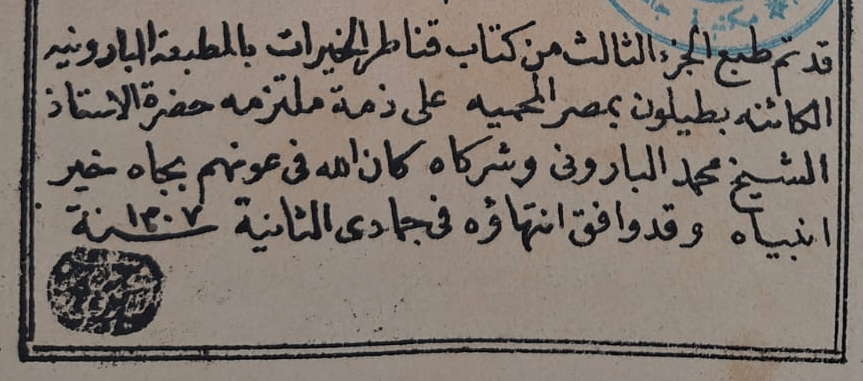 قد تم طبع الجزء الثالث من كتاب قناطر الخيرات بالمطبعة البارونيه
الكائنه بطيلون بمصر المحميه على ذمة ملتزمه حضرة الاستاذ
الشيخ محمد البارونى وشركاه كان الله فى عونهم بجاه خير
انبياه وقد وافق انتهاؤه فى جمادى الثانية سنة ١٣٠٧